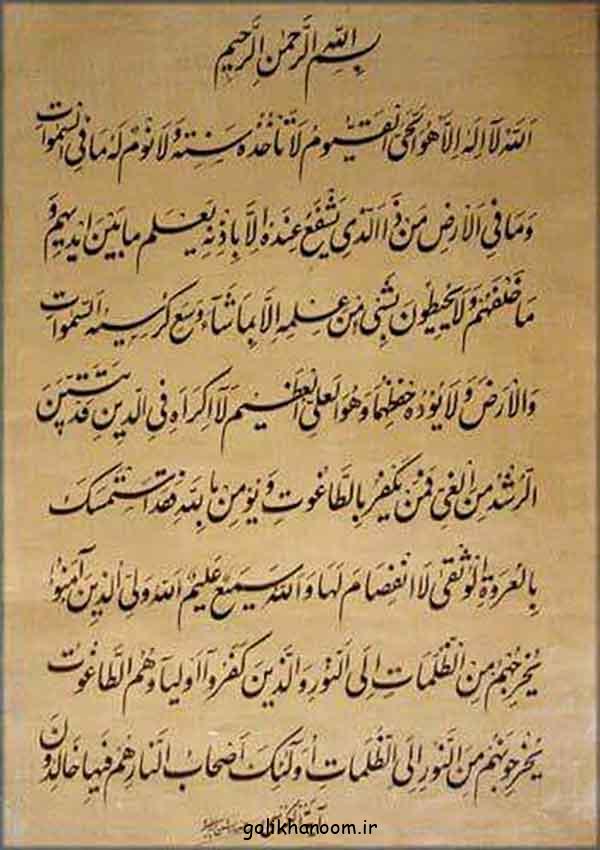 بِسْمِ اللّٰهِ الرَّحْمٰنِ الرَّحِيمِ
اَللّٰهُ لَا اِلٰهَ اِلَّا هُوَ الْحَيُّ الْقَيُّومُ لَا تَأْخُذُهُ سِنَةٌ وَلَا نَوْمٌ لَهُ مَا فِي السَّمٰوَاتِ
وَمَا فِي الْاَرْضِ مَنْ ذَا الَّذِي يَشْفَعُ عِنْدَهُ اِلَّا بِاِذْنِهِ يَعْلَمُ مَا بَيْنَ اَيْدِيهِمْ وَ
مَا خَلْفَهُمْ وَلَا يُحِيطُونَ بِشَيْءٍ مِنْ عِلْمِهِ اِلَّا بِمَا شَاءَ وَسِعَ كُرْسِيُّهُ السَّمٰوَاتِ
وَالْاَرْضَ وَلَا يَؤُدُهُ حِفْظُهُمَا وَهُوَ الْعَلِيُّ الْعَظِيمُ لَا اِكْرَاهَ فِي الدِّينِ قَدْ تَبَيَّنَ
الرُّشْدُ مِنَ الْغَيِّ فَمَنْ يَكْفُرْ بِالطَّاغُوتِ وَيُؤْمِنْ بِاللّٰهِ فَقَدِ اسْتَمْسَكَ
بِالْعُرْوَةِ الْوُثْقٰى لَا انْفِصَامَ لَهَا وَاللّٰهُ سَمِيعٌ عَلِيمٌ اَللّٰهُ وَلِيُّ الَّذِينَ آمَنُوا
يُخْرِجُهُمْ مِنَ الظُّلُمَاتِ اِلَى النُّورِ وَالَّذِينَ كَفَرُوا اَوْلِيَاؤُهُمُ الطَّاغُوتُ
يُخْرِجُونَهُمْ مِنَ النُّورِ اِلَى الظُّلُمَاتِ اُولٰئِكَ اَصْحَابُ النَّارِ هُمْ فِيهَا خَالِدُونَ
golikhanoom.ir